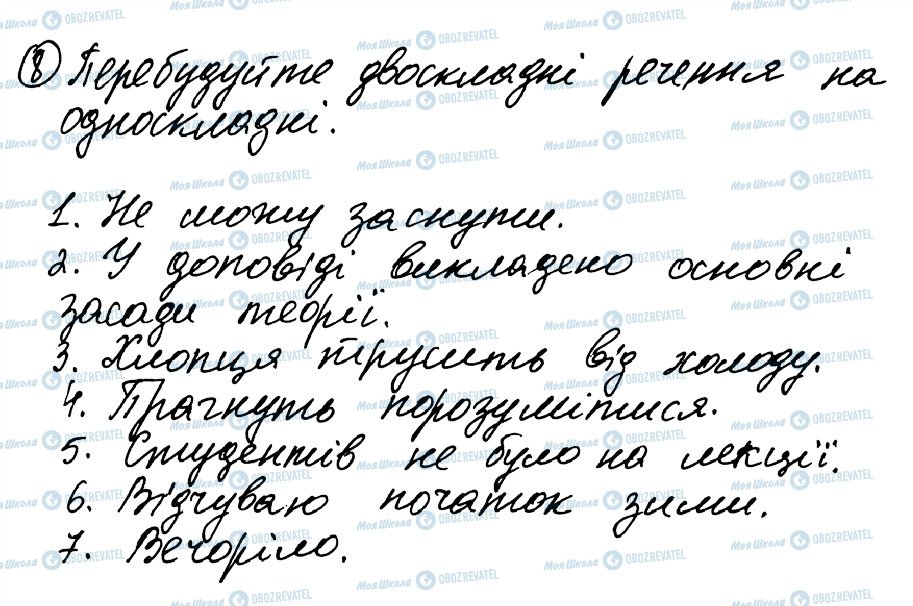 8 Перебудуйте двоскладні речення на
односкладні.
1. Не можу заснути.
2. У доповіді викладено основні
засади теорії.
3. Хлопця трусить від холоду.
4. Прагнуть порозумітися.
5. Студентів не було на лекції.
6. Відчуваю початок зими.
7. Вечоріло.